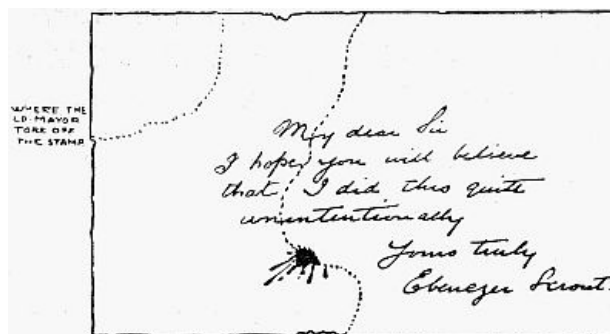 WHERE THE
LD. MAYOR
TORE OFF
THE STAMP
My dear Sir
I hope you will believe
that I did this quite
unintentionally
Yours truly
Ebenezer